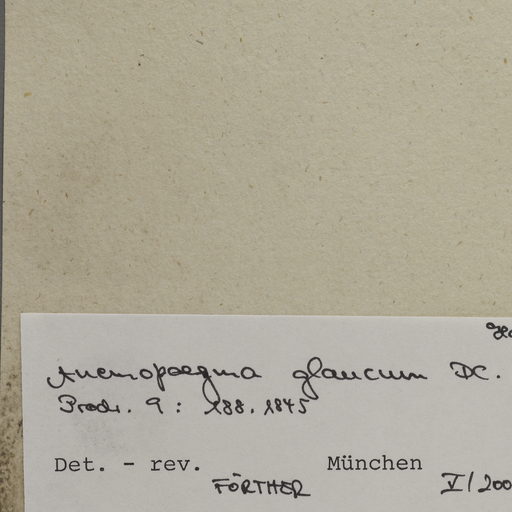 Anemopaegma glaucum DC.
Prodr. 9: 188. 1845
Det. - rev. München
FÖRTHER V/200